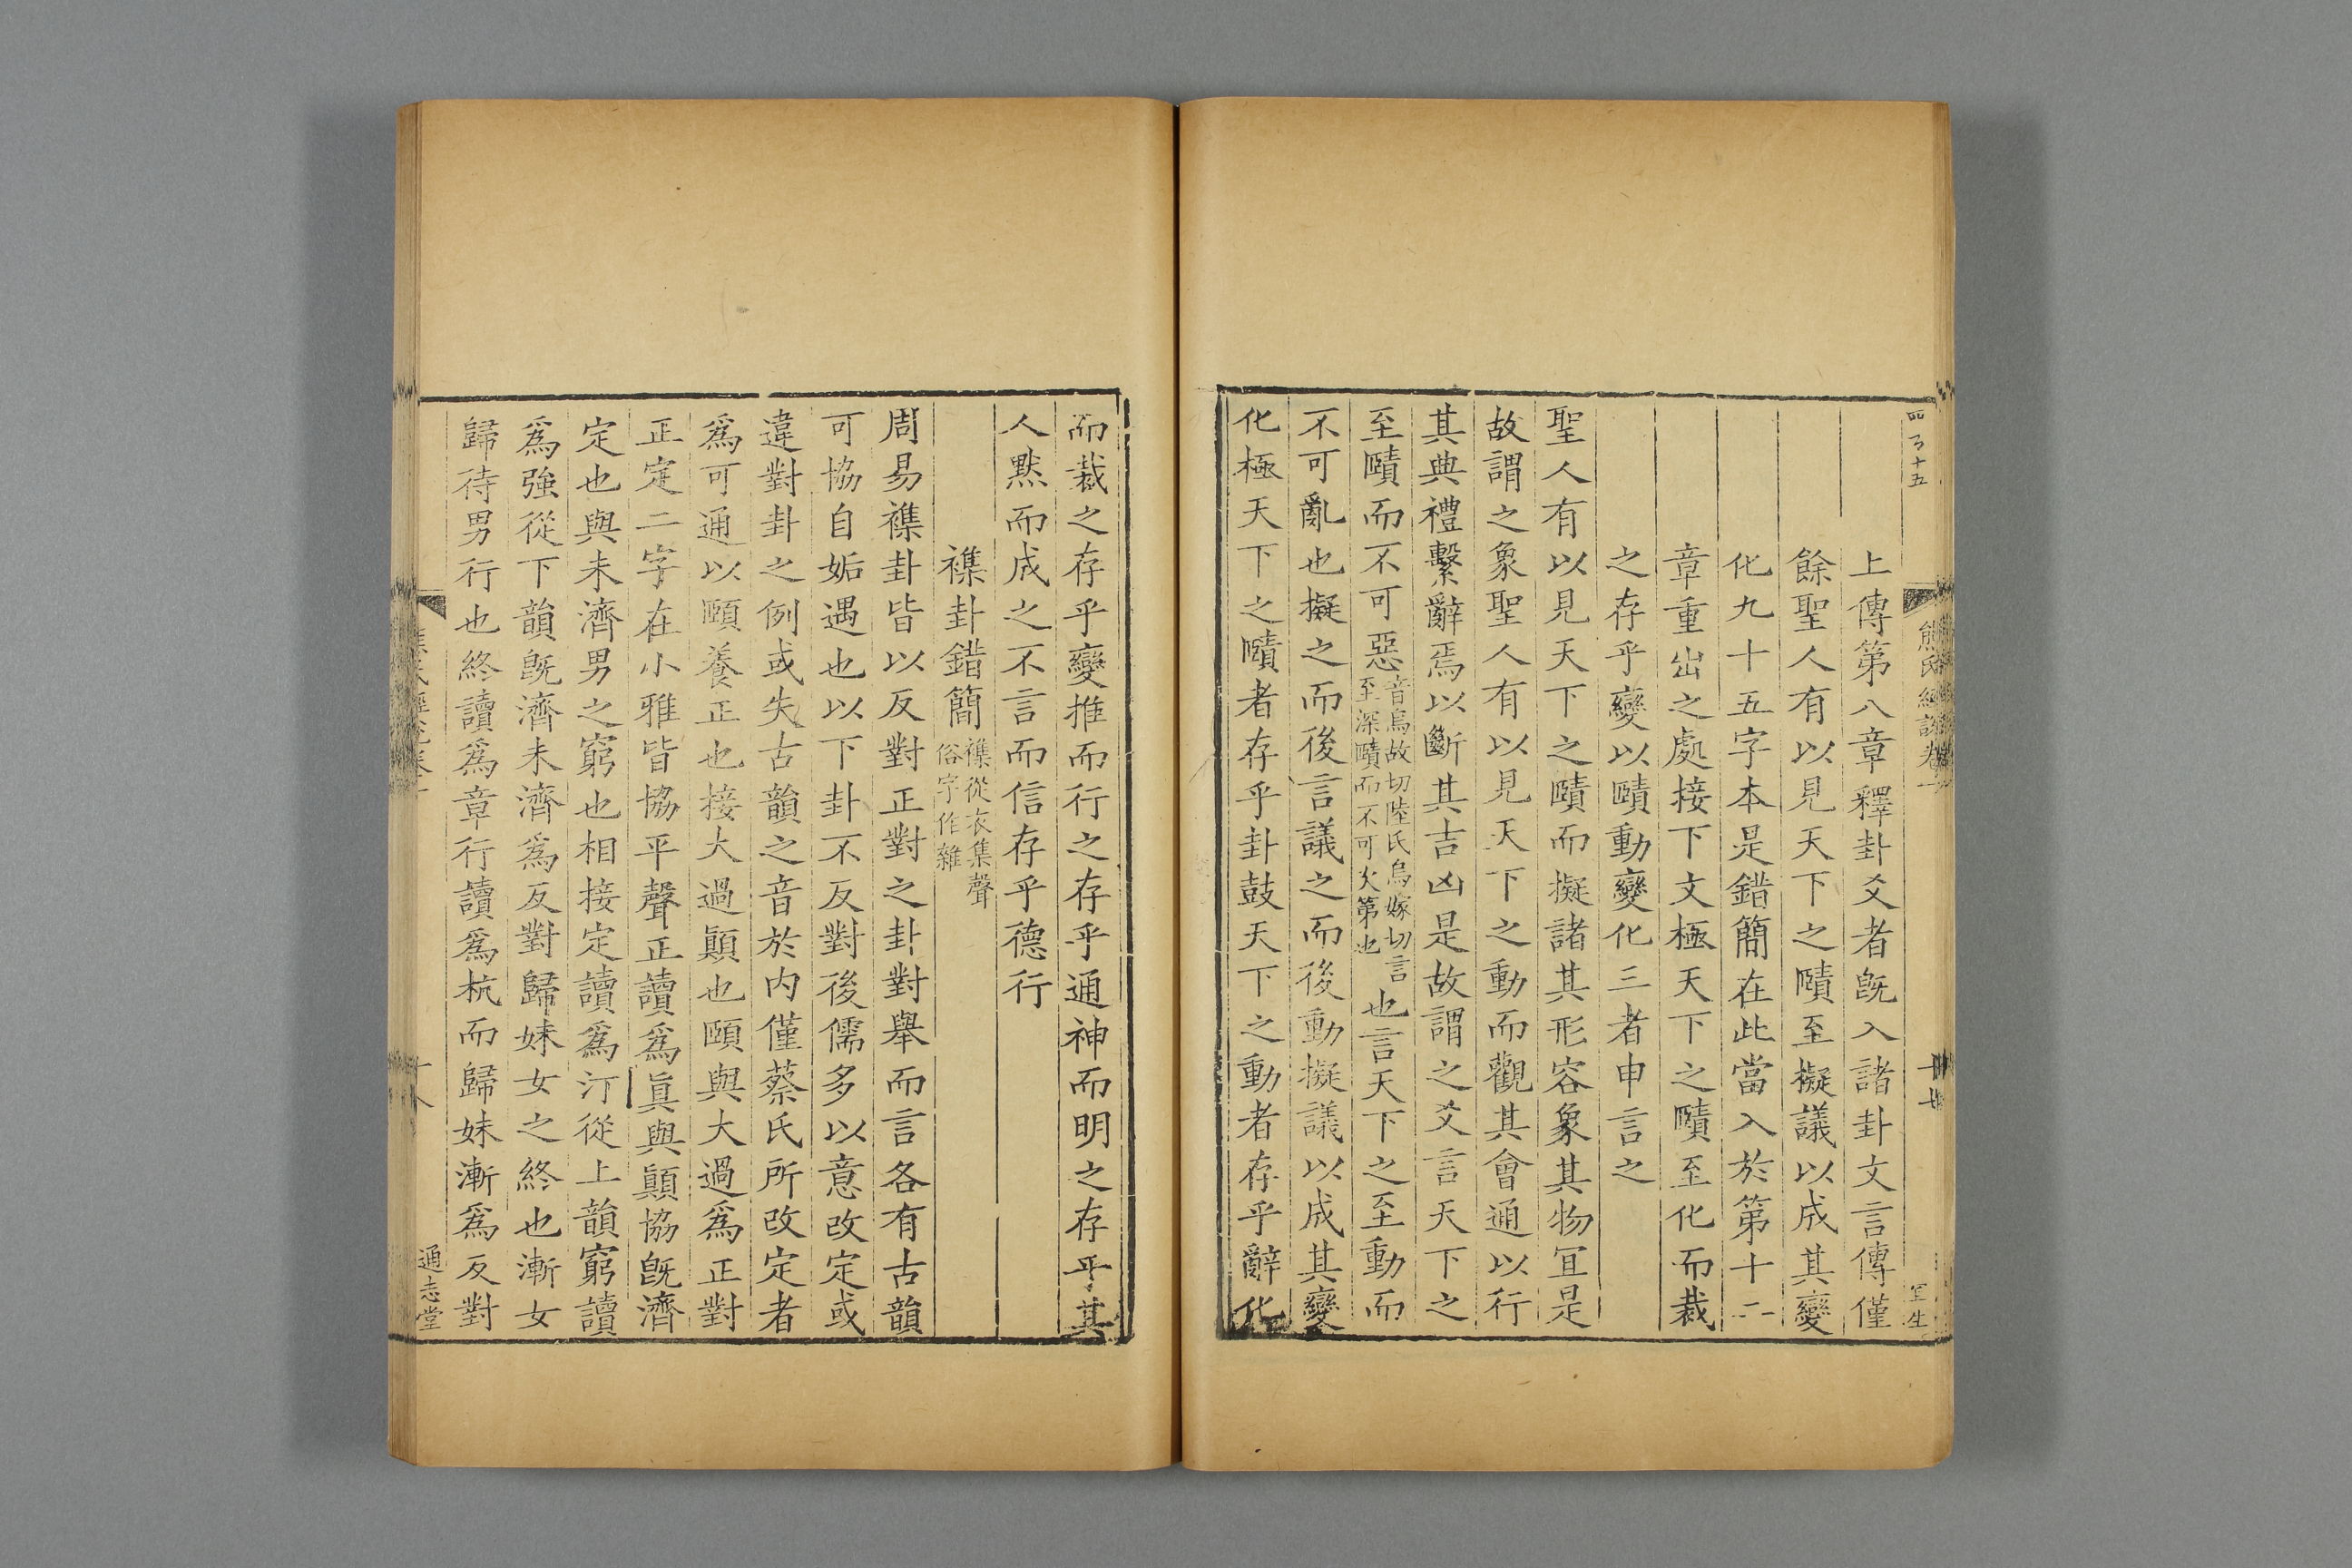 熊氏經說卷一
上傳第八章釋卦爻者旣入諸卦文言傳僅
餘聖人有以見天下之賾至擬議以成其變
化九十五字本是錯簡在此當入於第十二
章重出之處接下文極天下之賾至化而裁
之存乎變以賾動變化三者申言之
聖人有以見天下之賾而擬諸其形容象其物宜是
故謂之象聖人有以見天下之動而觀其會通以行
其典禮繫辭焉以斷其吉凶是故謂之爻言天下之
至賾而不可惡音烏故切陸氏烏嫁切言至深賾而不可次第也也言天下之至動而
不可亂也擬之而後言議之而後動擬議以成其變
化極天下之賾者存乎卦鼓天下之動者存乎辭化
而裁之存乎變推而行之存乎通神而明之存乎其
人黙而成之不言而信存乎德行
襍卦錯簡襍從衣集聲俗字作雜
周易襍卦皆以反對正對之卦對舉而言各有古韻
可協自姤遇也以下卦不反對後儒多以意改定或
違對卦之例或失古韻之音於内僅蔡氏所改定者
爲可通以頤養正也接大過顚也頤與大過爲正對
正定二字在小雅皆協平聲正讀爲眞與顚協旣濟
定也與未濟男之窮也相接定讀爲汀從上韻窮讀
爲強從下韻旣濟未濟爲反對歸妹女之終也漸女
歸待男行也終讀爲章行讀爲杭而歸妹漸爲反對
通志堂